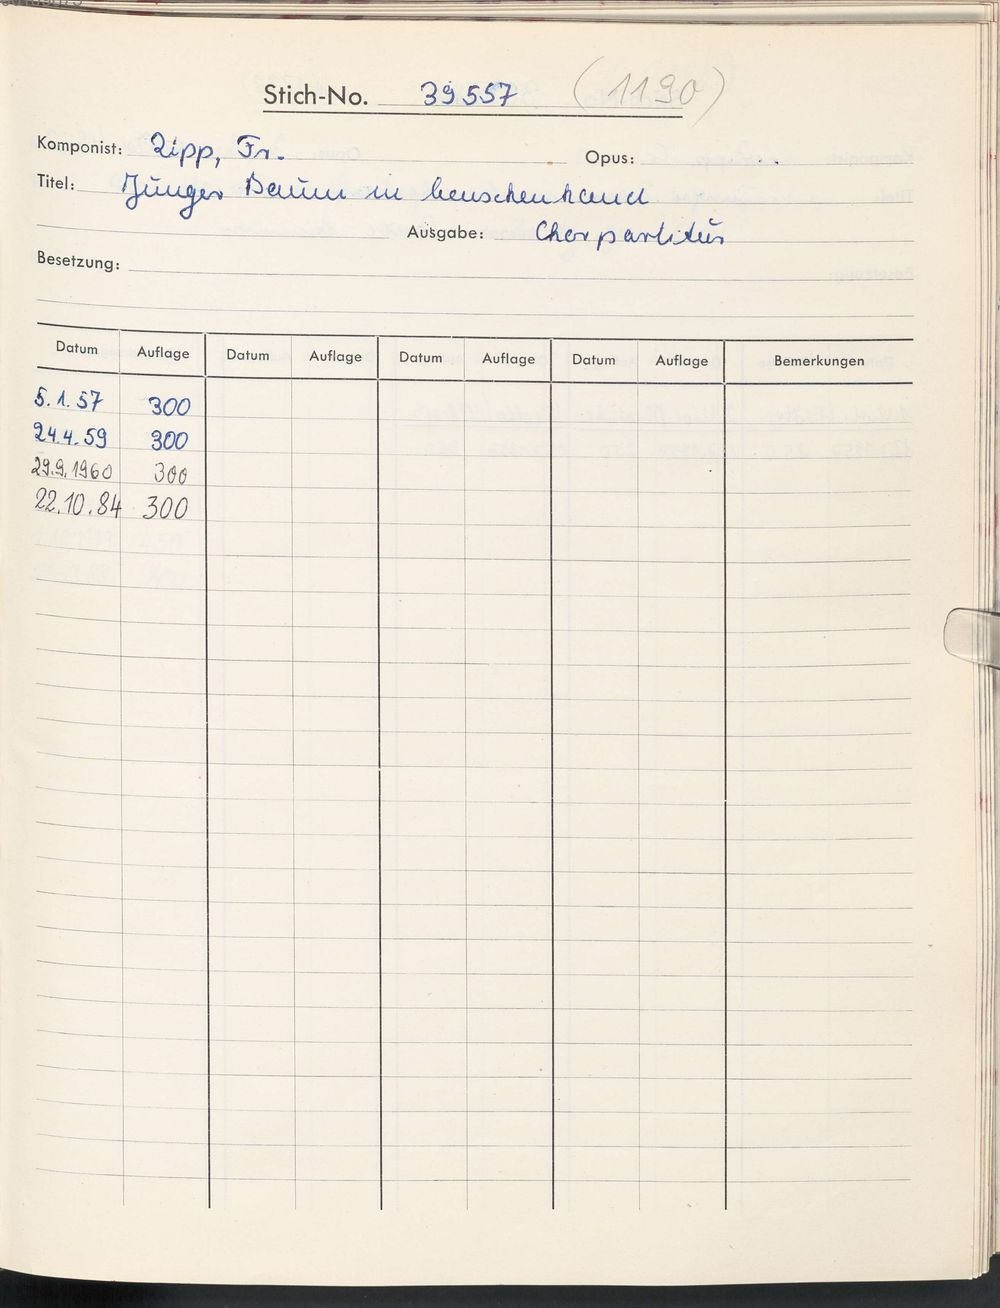 Stich-No. 39557 (1190)
Komponist: Zipp, Fr. Opus:
Titel: Junger Baum in Menschenhand
Ausgabe: Chorpartitur
Besetzung:
Datum Auflage Datum Auflage Datum Auflage Datum Auflage Bemerkungen
5.1.57 300
24.4.59 300
29.9.1960 300
22.10.84 300